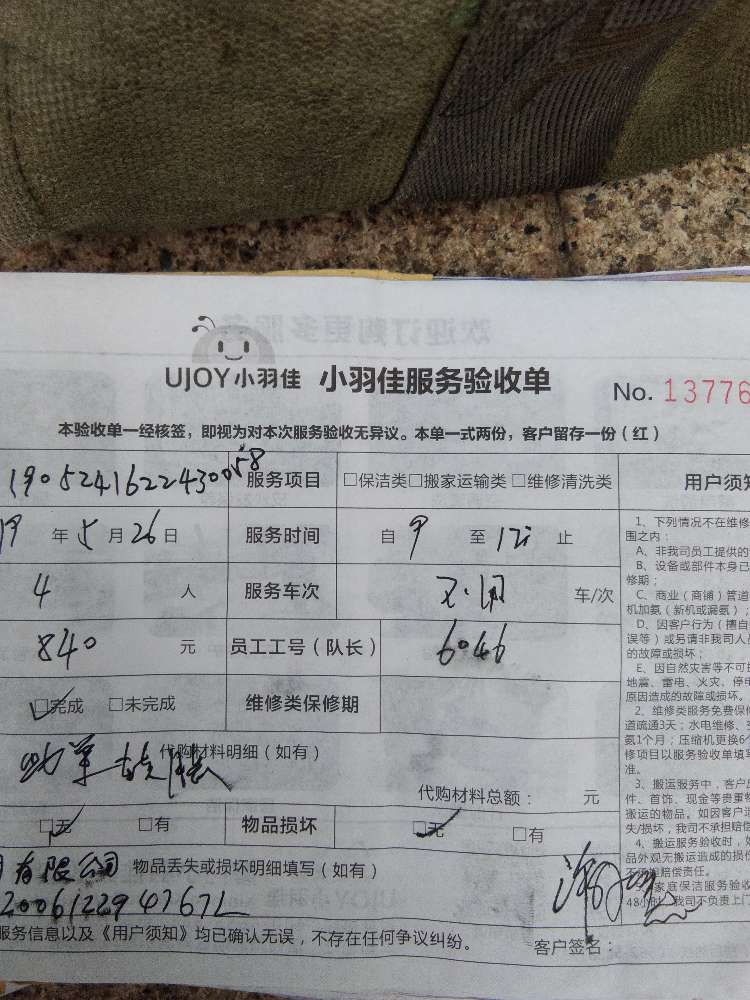 UJOY小羽佳 小羽佳服务验收单 No. 13776
本验收单一经核签，即视为对本次服务验收无异议。本单一式两份，客户留存一份（红）
服务项目 □保洁类□搬家运输类□维修清洗类 用户须知
19年5月26日 服务时间 自 9 至 12 止
4 人 服务车次 车/次
840 元 员工工号（队长） 6046
☑完成 □未完成 维修类保修期
代购材料明细（如有）
代购材料总额： 元
☑无 □有 物品损坏 ☑无 □有
有限公司 物品丢失或损坏明细填写（如有）
服务信息以及《用户须知》均已确认无误，不存在任何争议纠纷。
客户签名：
1、下列情况不在维修
围之内：
A、非我司员工提供的
B、设备或部件本身已
修期；
C、商业（商铺）管道
机加氨（新机或漏氨）；
D、因客户行为（擅自
误等）或另请非我司人员
的故障或损坏；
E、因自然灾害等不可
地震、雷电、火灾、停电
原因造成的故障或损坏。
2、维修类服务免费保
道疏通3天；水电维修、
氨1个月；压缩机更换6个
修项目以服务验收单填写
准。
3、搬运服务中，客户
件、首饰、现金等贵重
搬运的物品。如因客户
失/损坏，我司不承担赔偿
4、搬运服务验收时，如
品外观无搬运造成的损
赔偿责任。
家庭保洁服务验收
48小时，我司不负责上门